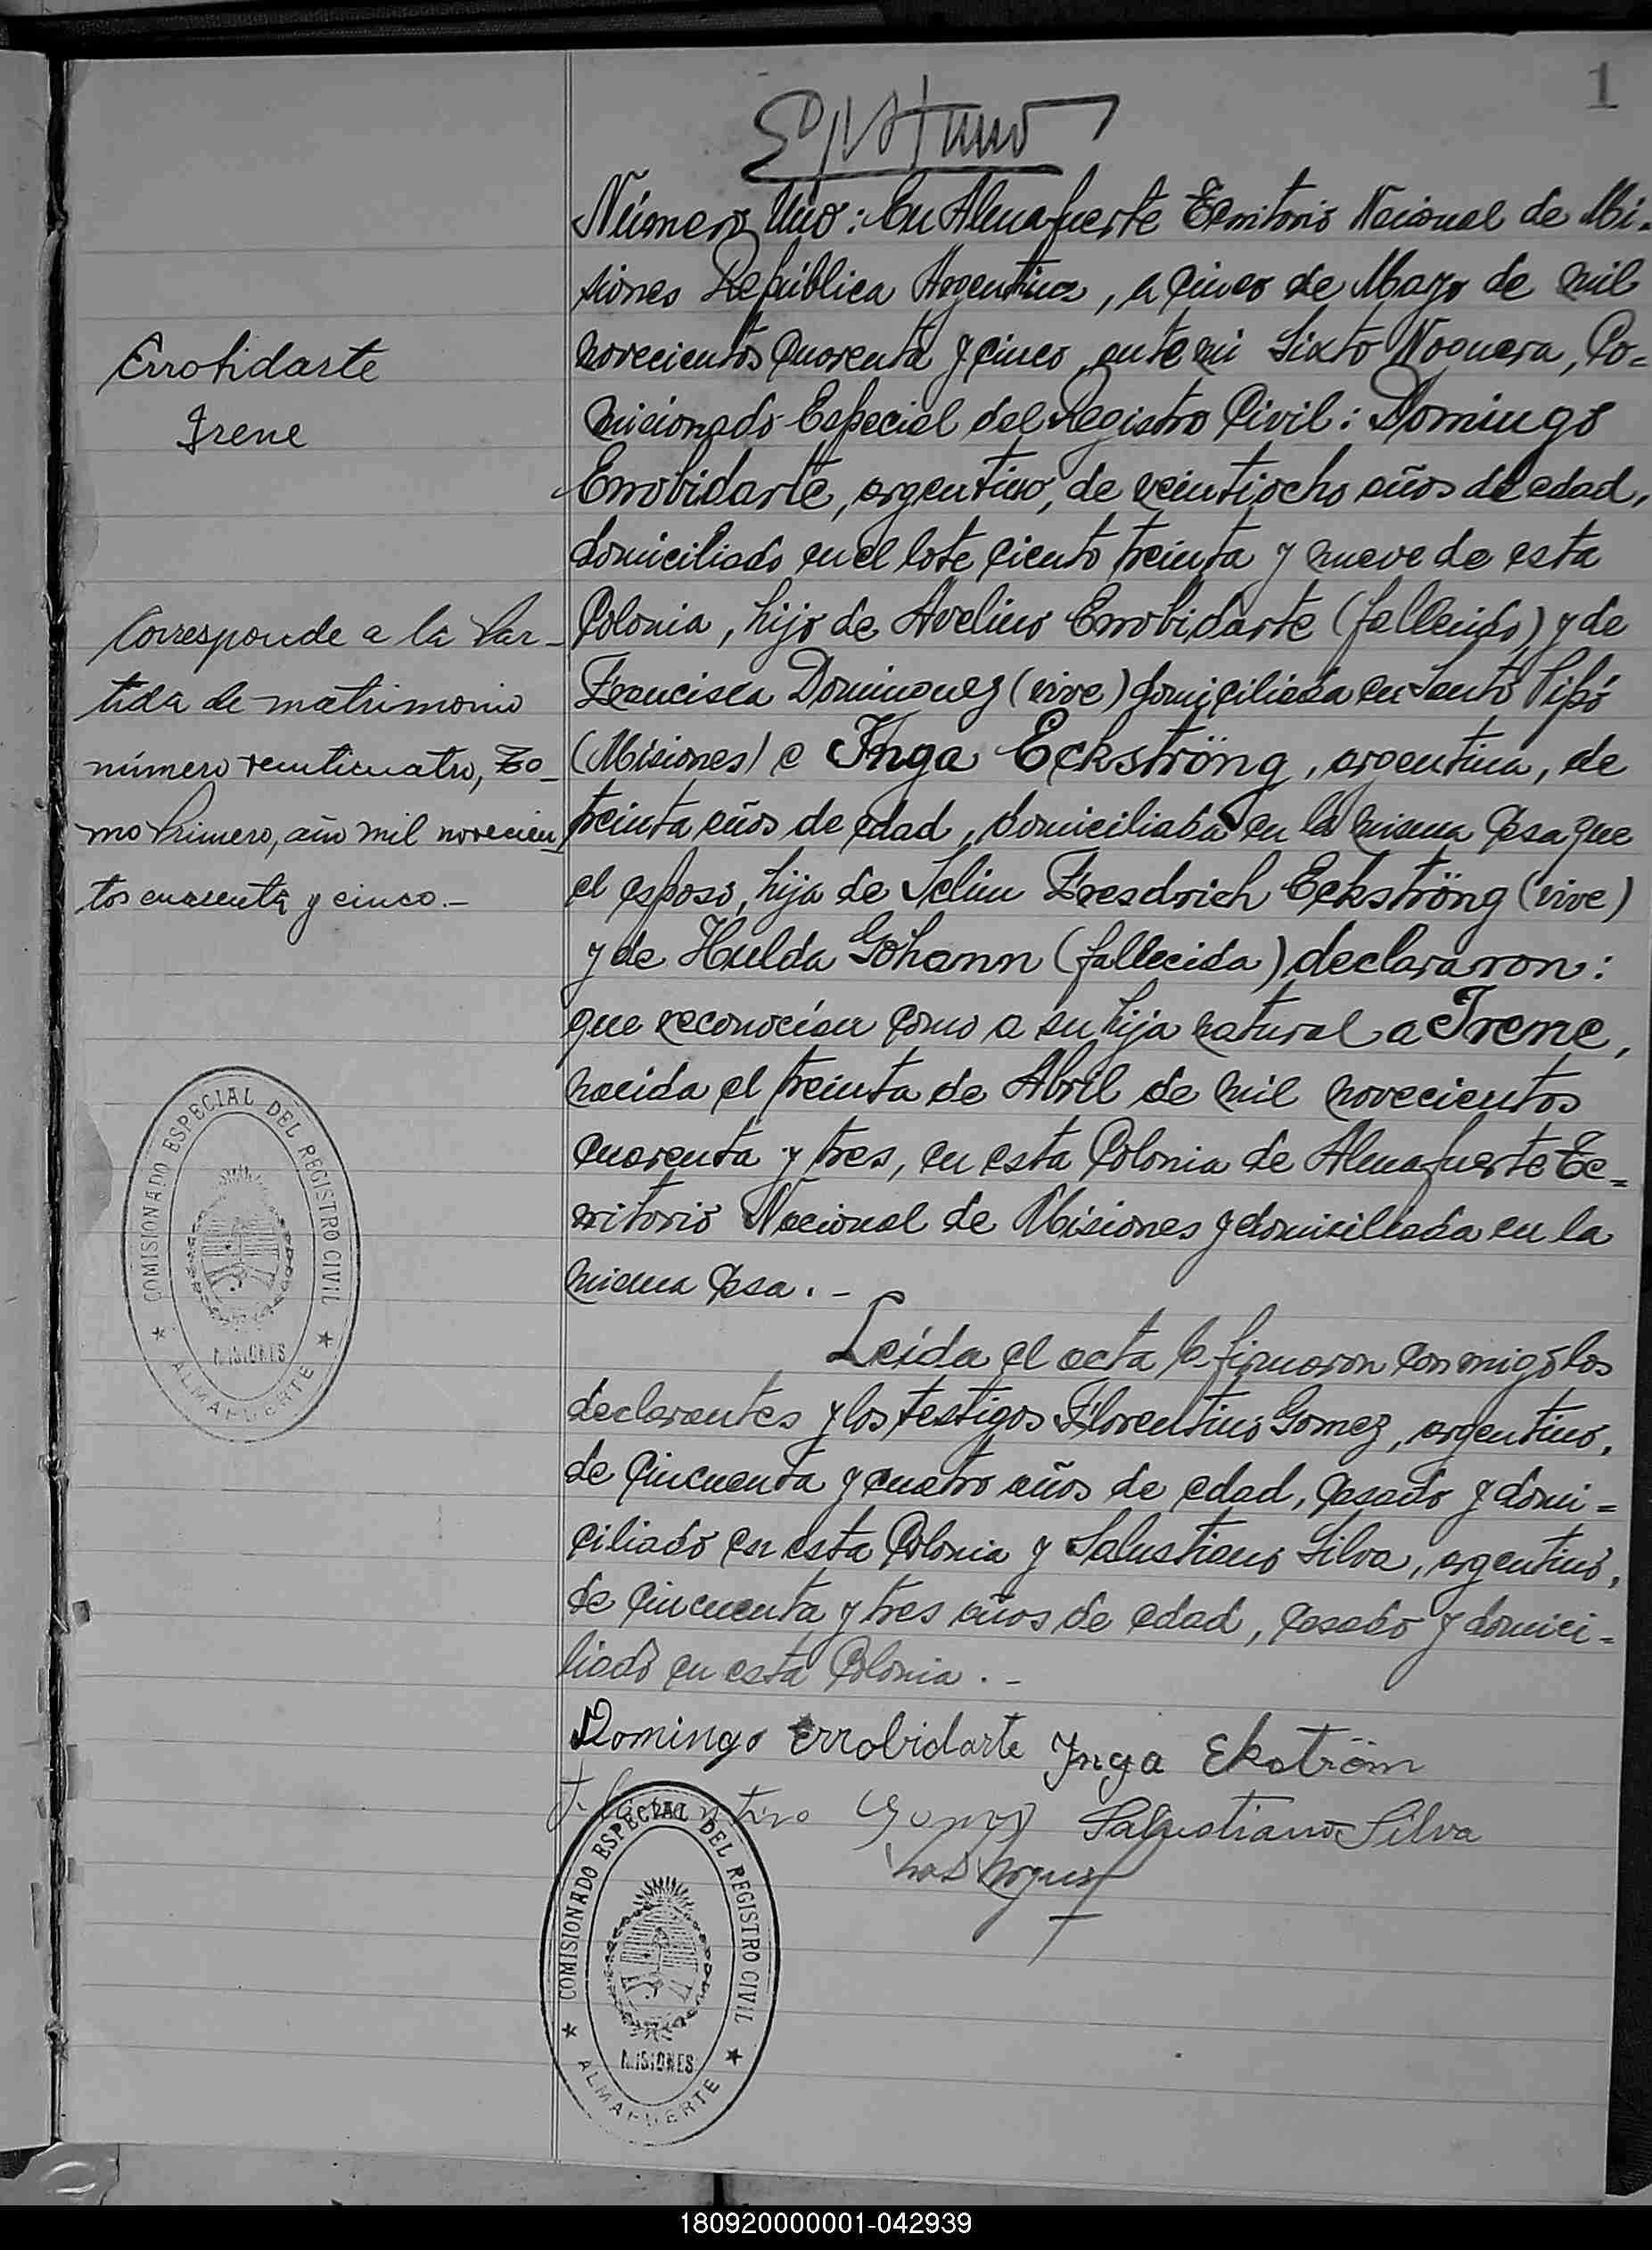 1
Número Uno: En Almafuerte Territorio Nacional de Mi-
siones República Argentina, a cinco de Mayo de mil
novecientos cuarenta y cinco, ante mi Sixto Noguera, Co=
misionado Especial del Registro Civil: Domingo
Errobidarte, argentino, de veintiocho años de edad,
domiciliado en el lote ciento treinta y nueve de esta
Colonia, hijo de Avelino Errobidarte (fallecido) y de
Francisca Dominguez (vive) domiciliada en Santo Pipó
(Misiones) e Inga Eckströng, argentina, de
treinta años de edad, domiciliada en la misma casa que
el esposo, hija de Selim Fresdrich Eckströng (vive)
y de Hulda Gohann (fallecida) declararon:
que reconocían como a su hija natural a Irene,
nacida el treinta de Abril de mil novecientos
cuarenta y tres, en esta Colonia de Almafuerte Te=
rritorio Nacional de Misiones y domicillada en la
misma casa.-
Leída el acta la firmaron conmigo los
declarantes y los testigos Florentino Gomez, argentino,
de cincuenta y cuatro años de edad, casado y domi=
ciliado en esta Colonia y Salustiano Silva, argentino,
de cincuenta y tres años de edad, casado y domici=
liado en esta Colonia.-
Domingo Errobidarte Inga Ekström
Florentino Gomez Salustiano Silva
Errobidarte
Irene
Corresponde a la Par-
tida de matrimonio
número veinticuatro, To-
mo Primero, año mil novecien
tos cuarenta y cinco.-
COMISIONADO ESPECIAL DEL REGISTRO CIVIL
MISIONES
ALMAFUERTE
COMISIONADO ESPECIAL DEL REGISTRO CIVIL
MISIONES
ALMAFUERTE
180920000001-042939